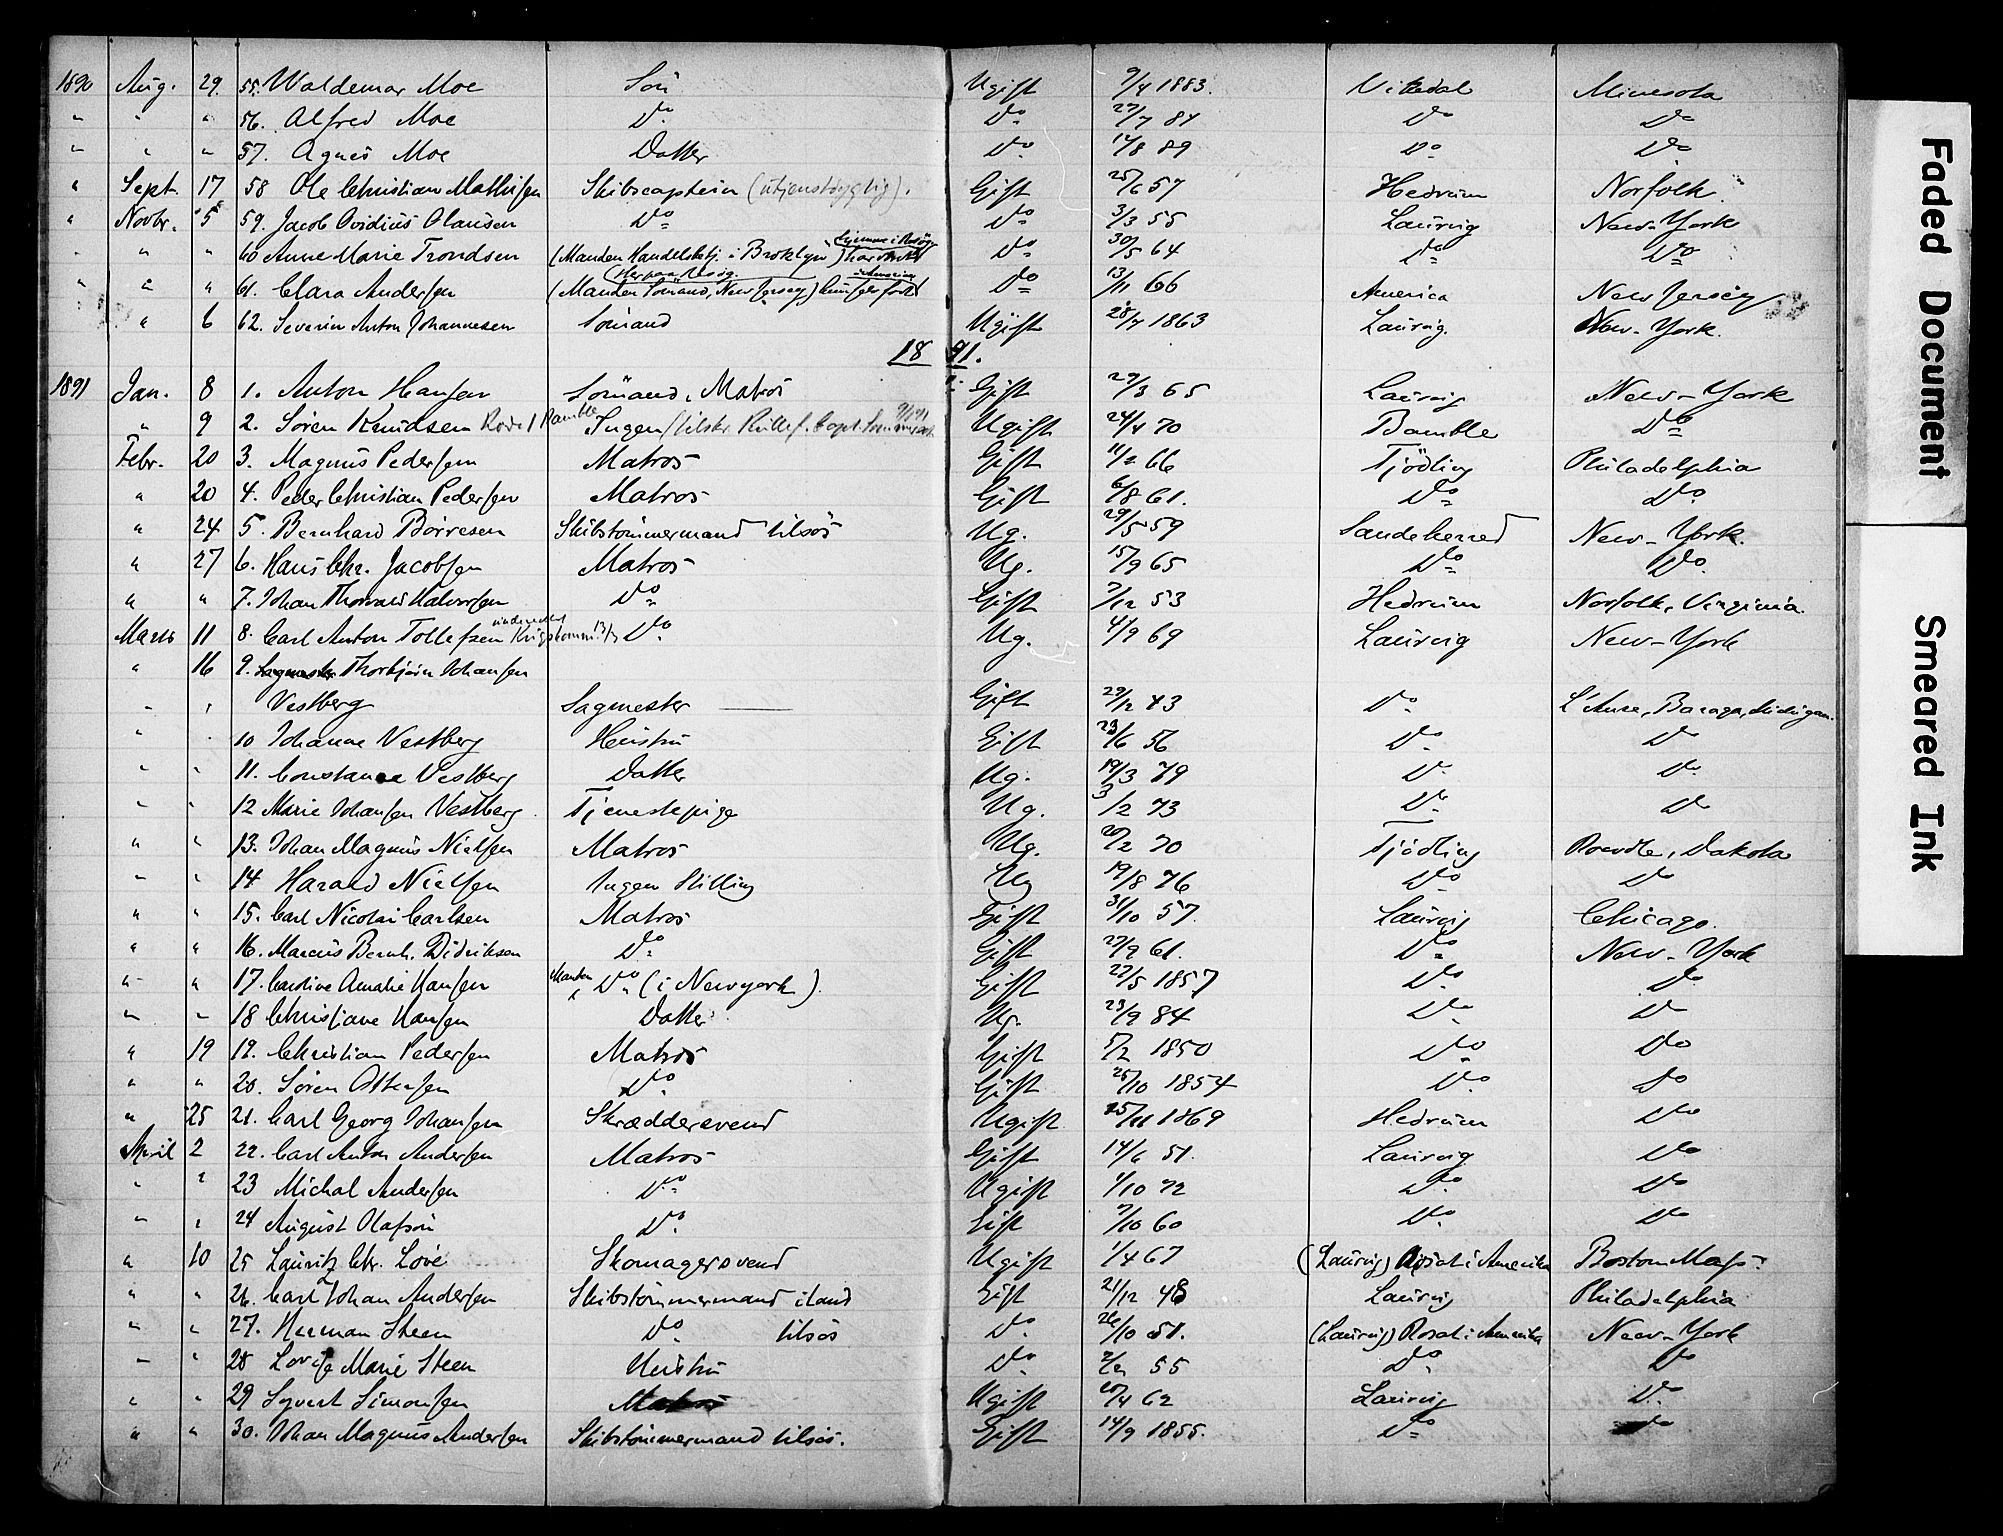 1890 Aug. 29. 55. Waldemar Moe Sön Ugift 9/4 1883. Vikedal Minesota
" " " 56. Alfred Moe Do Do 27/7 84 Do Do
" " " 57. Agnes Moe Datter Do 14/8 89 Do Do
" Sept. 17 58 Ole Christian Mathisen Skibscaptein (utjenstdygtig). Gift 25/6 57 Hedrum Norfolk.
" Novbr. 5 59. Jacob Ovidius Olausen Do Do 3/3 55 Laurvig New-York
" " " 60 Anne Marie Trondsen (Manden Handelsbtj. i Broklyn) Do 30/5 64 Do Do
" " " 61. Clara Andersen (Manden Sömand, New Jersey) Do 13/11 66 America New Jersey
" 6 62. Severin Anton Johannesen Sömand Ugift 28/7 1863 Laurvig. New-York.
1891.
1891 Jan. 8 1. Anton Hansen Sömand, Matros Gift 29/3 65 Laurvig New-York
" 9 2. Søren Knudsen Ingen Ugift 24/4 70 Bamble Do
Febr. 20 3. Magnus Pedersen Matros Gift 11/2 66 Tjödling Philadelphia
" 20 4. Peder Christian Pedersen Matros Gift 6/8 61. Do Do
" 24 5. Bernhard Börresen Skibstömmermand tilsös Ug. 29/5 59 Sandeherred New-York.
" 27 6. Hans Chr. Jacobsen Matros Ug. 15/9 65 Do Do
" " 7. Johan Thorvald Halvorsen Do Gift 7/12 53 Hedrum Norfolk, Virginia.
Marts 11 8. Carl Anton Tollefsen Do Ug. 4/9 69 Laurvig New-York
" 16 9. Thorbjörn Johansen
" " Vestberg Sagmester Gift 29/12 43 Do L'Anse, Baraga, Michigan.
" " 10 Johanne Vestberg Hustru Gift 23/6 56 Do Do
" " 11. Constance Vestberg Datter Ug. 19/3 79 Do Do
" " 12 Marie Johansen Vestberg Tjenestepige Ug. 3/2 73 Do Do
" " 13. Johan Magnus Nielsen Matros Ug. 20/2 70 Tjödling Dakota
" " 14 Harald Nielsen Ingen Stilling Ug 19/8 76 Do Do
" " 15. Carl Nicolai Carlsen Matros Gift 31/10 57. Laurvig Chicago.
" " 16. Marcus Bernh. Didriksen Do Gift 27/9 61. Do New-York
" " 17. Caroline Amalie Hansen Manden Do (i Newyork). Gift 22/5 1857 Do Do
" " 18 Christiane Hansen Datter Ug. 23/9 84 Do Do
" 19 19. Christian Pedersen Matros Gift 5/2 1850 Do Do
" " 20. Søren Ottersen Do Gift 25/10 1854 Do Do
" 25 21. Carl Georg Johansen Skræddersvend Ugift 25/11 1869 Hedrum Do
April 2 22. Carl Anton Andersen Matros Gift 14/6 51. Laurvig Do
" " 23 Michal Andersen Do Ugift 1/10 72 Do Do
" " 24 August Olafsön Do Gift 7/10 60 Do Do
" 10 25 Lauritz Chr. Löve Skomagersvend Ugift 1/4 67 (Laurvig) Bosat i Amerika Boston Mass.
" " 26. Carl Johan Andersen Skibstömmermand iland Gift 21/12 48 Laurvig Philadelphia
" " 27. Herman Steen Do tilsös Do 26/10 51. (Laurvig) Bosat i Amerika New-York
" " 28 Lovise Marie Steen Hustru Do 2/2 55 Do Do
" " 29 Syvert Simonsen Matros Ugift 10/4 62 Laurvig Do
" " 30. Johan Magnus Andersen Skibstömmermand tilsös. Gift 14/9 1855. Do Do
Faded Document
Smeared Ink